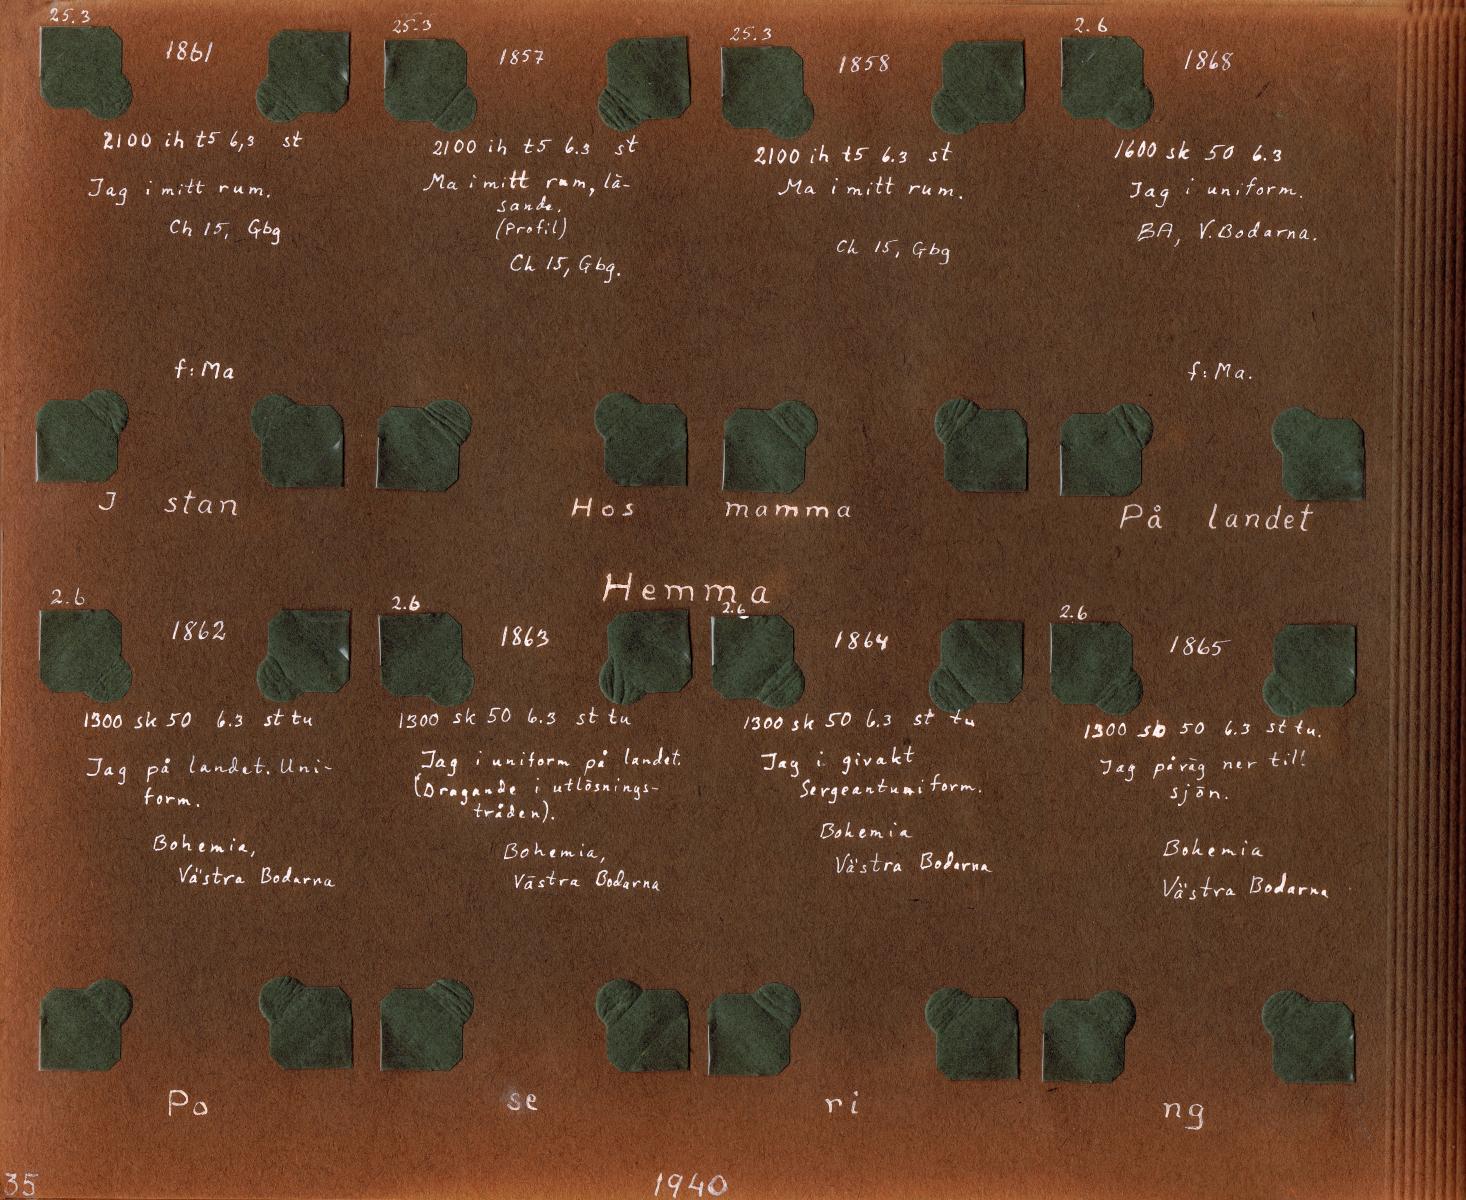 25.3
1861
2100 ih t5 6,3 st
Jag i mitt rum.
Ch 15, Gbg
f: Ma
25.3
1857
2100 ih t5 6.3 st
Ma i mitt rum, lä-
sande.
(Profil)
Ch 15, Gbg.
25.3
1858
2100 ih t5 6.3 st
Ma i mitt rum.
Ch 15, Gbg
2.6
1868
1600 sk 50 6.3
Jag i uniform.
BA, V. Bodarna.
f: Ma.
I stan
Hos mamma
På landet
Hemma
2.6
1862
1300 sk 50 6.3 st tu
Jag på landet. Uni-
form.
Bohemia,
Västra Bodarna
2.6
1863
1300 sk 50 6.3 st tu
Jag i uniform på landet.
(Dragande i utlösnings-
tråden).
Bohemia,
Västra Bodarna
2.6
1864
1300 sk 50 6.3 st tu
Jag i givakt
Sergeantuniform.
Bohemia
Västra Bodarna
2.6
1865
1300 sk 50 6.3 st tu.
Jag påväg ner till
sjön.
Bohemia
Västra Bodarna
Po se ri ng
35
1940